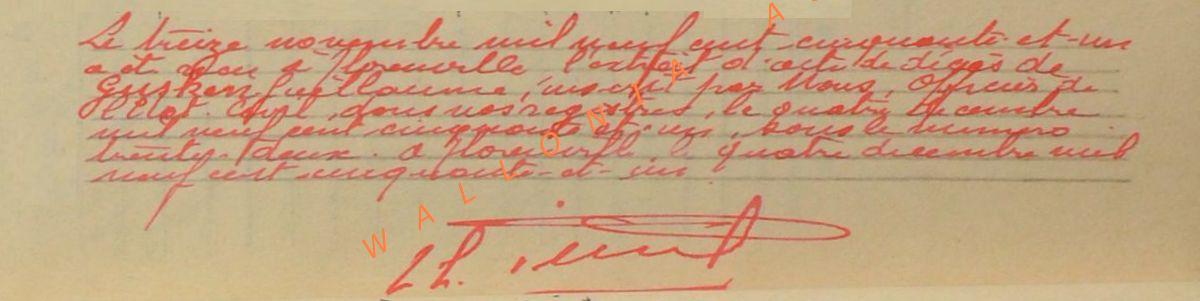 Le treize novembre mil neuf cent cinquante-et-un
a été reçu à Florenville l'extrait d'acte de décès de
Guillaume, inscrit par Nous, Officier de
l'Etat Civil, dans nos registres, le quatre decembre
mil neuf cent cinquante et un, sous le numero
trente-deux. A Florenville le quatre decembre mil
neuf cent cinquante-et-un
WALLONIA